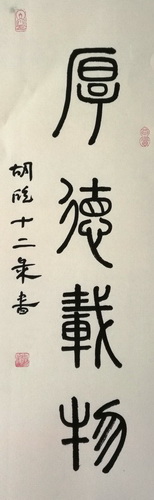 厚德載物
胡**十二歲書